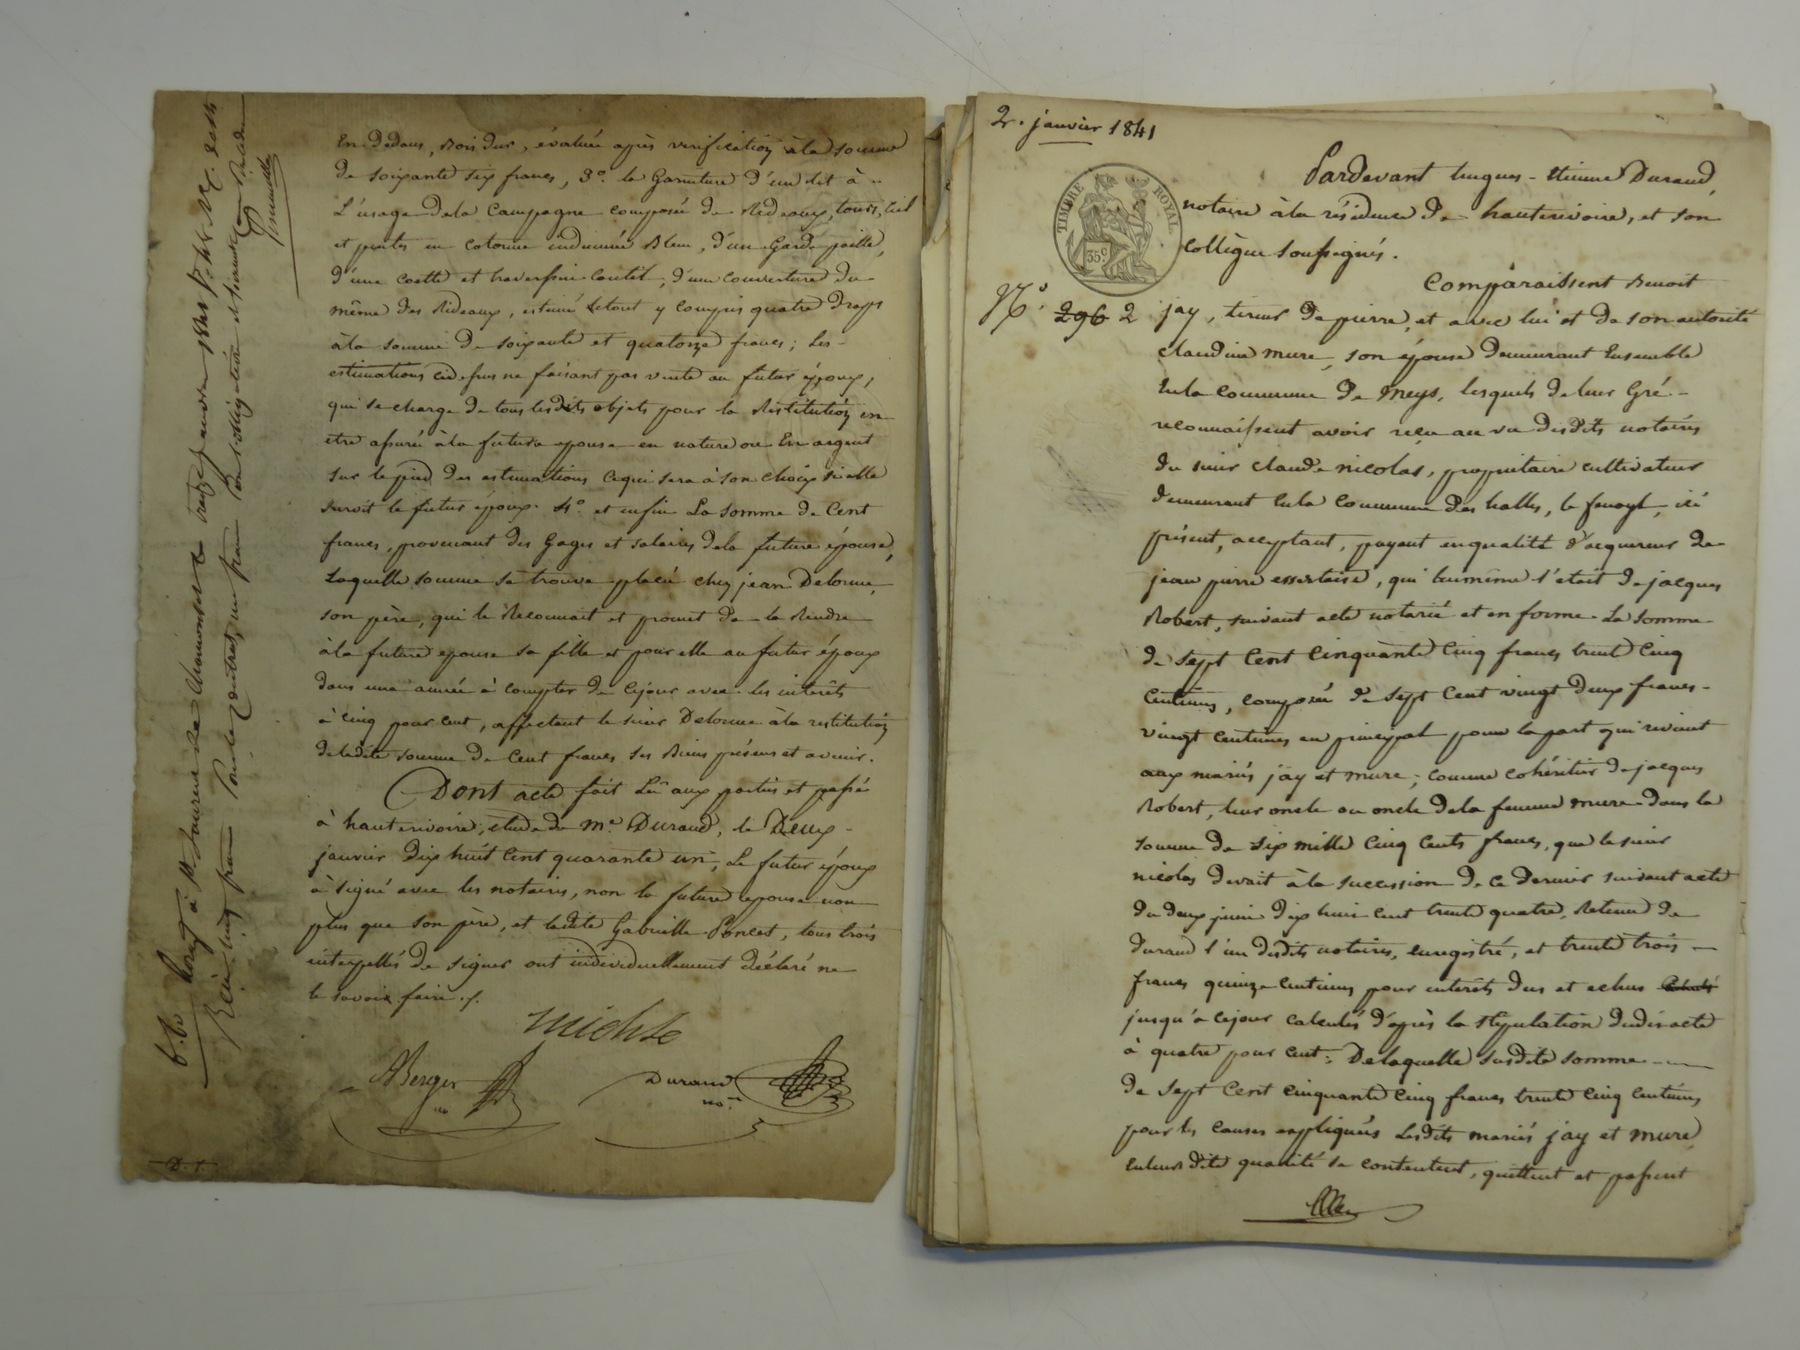 En Dedans, Bois dur, évaluée après vérification à la somme
de soixante six francs, 3.º la Garniture d'un lit à
L'usage de la Campagne composée de Rideaux, tours, ciel
et pentes en cotonne indienne Bleu, d'un Garde paille,
d'une coette et traversin coutil, d'une couverture du
même des Rideaux, estimé le tout y compris quatre draps
à la somme de soixante et quatorze francs ; Les
estimations cidessus ne faisant pas vente au futur époux,
qui se charge de tous lesdits objets pour la Restitution en
etre assuré à la future epouse en nature ou En argent
sur le pied des estimations ce qui sera à son choix si elle
survit le futur époux. 4.º et enfin La somme de Cent
francs, provenant des Gages et salaires de la future épouse,
Laquelle somme se trouve placée chez jean Delorme,
son père, qui le Reconnait et promet de la Rendre
à la future epouse sa fille et pour elle au futur époux
dans une année à compter de cejour avec les intérêts
à Cinq pour cent, affectant le sieur Delorme à la restitution
deladite somme de Cent francs ses Biens présens et avenir.
Dont acte fait Lû aux parties et passé
à hauterivoire, etude de Me Durand, le Deux
janvier Dix huit Cent quarante un, Le futur époux
à signé avec les notaires, non la future epouse non
plus que son père, et ladite Gabrielle Poncet, tous trois
interpellés de signer ont individuellement déclaré ne
le savoir faire ./.
Berger
Durand
no.re
D. 1.
2. janvier 1841
TIMBRE ROYAL
35c
Pardevant hugues-étienne Durand,
notaire à la résidence de hauterivoire, et son
Collègue soussignés.
Comparaissent Benoit
No. 296 2 jay, tireur de pierre, et avec lui et de son autorité
claudine mure, son épouse demeurant Ensemble
En la commune de Meys, lesquels de leur Gré
reconnaissent avoir reçu au vu desdits notaires
du sieur claude nicolas, propriétaire cultivateur
demeurant En la Commune des halles, le fenoyl, ici
présent, acceptant, payant en qualité d'acquereur de
jean pierre essertaise, qui lui même l'était de jacques
Robert, suivant acte notarié et en forme. La somme
de Sept Cent Cinquante Cinq francs trente Cinq
Centimes, composée de Sept Cent vingt deux francs
vingt Centimes en principal pour la part qui revient
aux mariés jay et mure, comme cohéritier de jacques
Robert, leur oncle ou oncle de la femme mure dans la
somme de six mille Cinq Cents francs, que le sieur
nicolas devait à la succession de ce dernier suivant acte
du deux juin dix huit cent trente quatre, Retenu de
durand l'un desdits notaires, enregistré, et trente trois
francs quinze Centimes pour intérêts dus et echus
jusqu'à cejour calculés d'après la stipulation dudit acte
à quatre pour cent : De laquelle susdite somme
de Sept Cent Cinquante Cinq francs trente Cinq Centimes
pour les Causes expliquées Lesdits mariés jay et mure
En leur dite qualité se contentent, quittent et passent